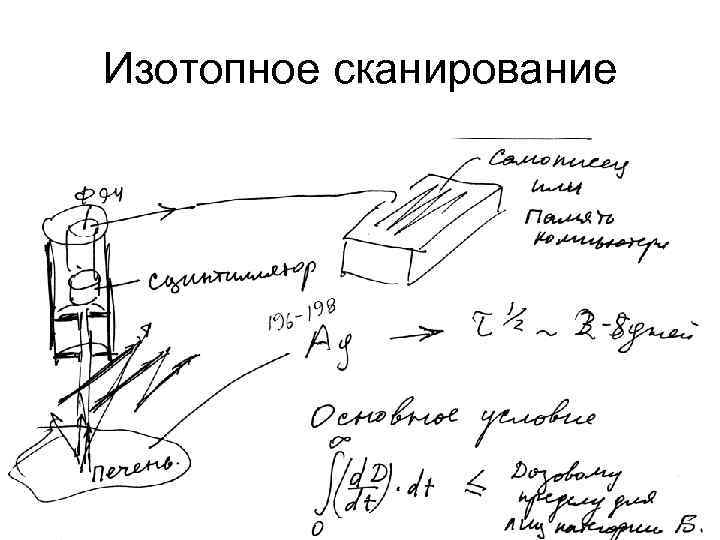 Изотопное сканирование
ФЭУ
Самописец
или
Память
компьютера
Сцинтиллятор
196-198
Ag → τ 1/2 ~ 3-8 дней
Основное условие
∞
∫ (dD/dt) · dt ≤ Дозовому
0
пределу для
лиц категории Б.
Печень.